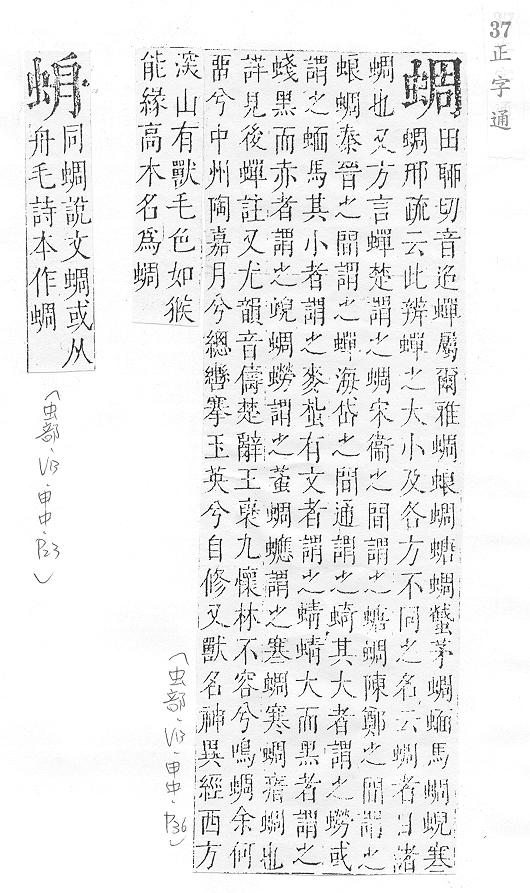 37
正字通
蜩
田聊切音迢蟬屬爾雅蜩蜋蜩螗蜩蠽茅蜩蝒馬蜩蜺寒
蜩邢疏云此辨蟬之大小及各方不同之名云蜩者目諸
蜩也又方言蟬楚謂之蜩宋衞之間謂之螗蜩陳鄭之間謂之
蜋蜩秦晉之間謂之蟬海岱之間通謂之蜻其大者謂之蟧或
謂之蝒馬其小者謂之麥蚻有文者謂之蜻蜻大而黑者謂之
蝬黑而赤者謂之蜺蜩蟧謂之蓋蜩蟪謂之寒蜩寒蜩瘖蜩也
詳見後蟬註又尤韻音儔楚辭王褒九懷林不容兮鳴蜩余何
畱兮中州陶嘉月兮總轡搴玉英兮自修又獸名神異經西方
深山有獸毛色如猴
能緣高木名爲蜩
𧊔
同蜩說文蜩或从
舟毛詩本作蜩
(虫部、V13、申中、P36)
(虫部、V13、申中、P23)